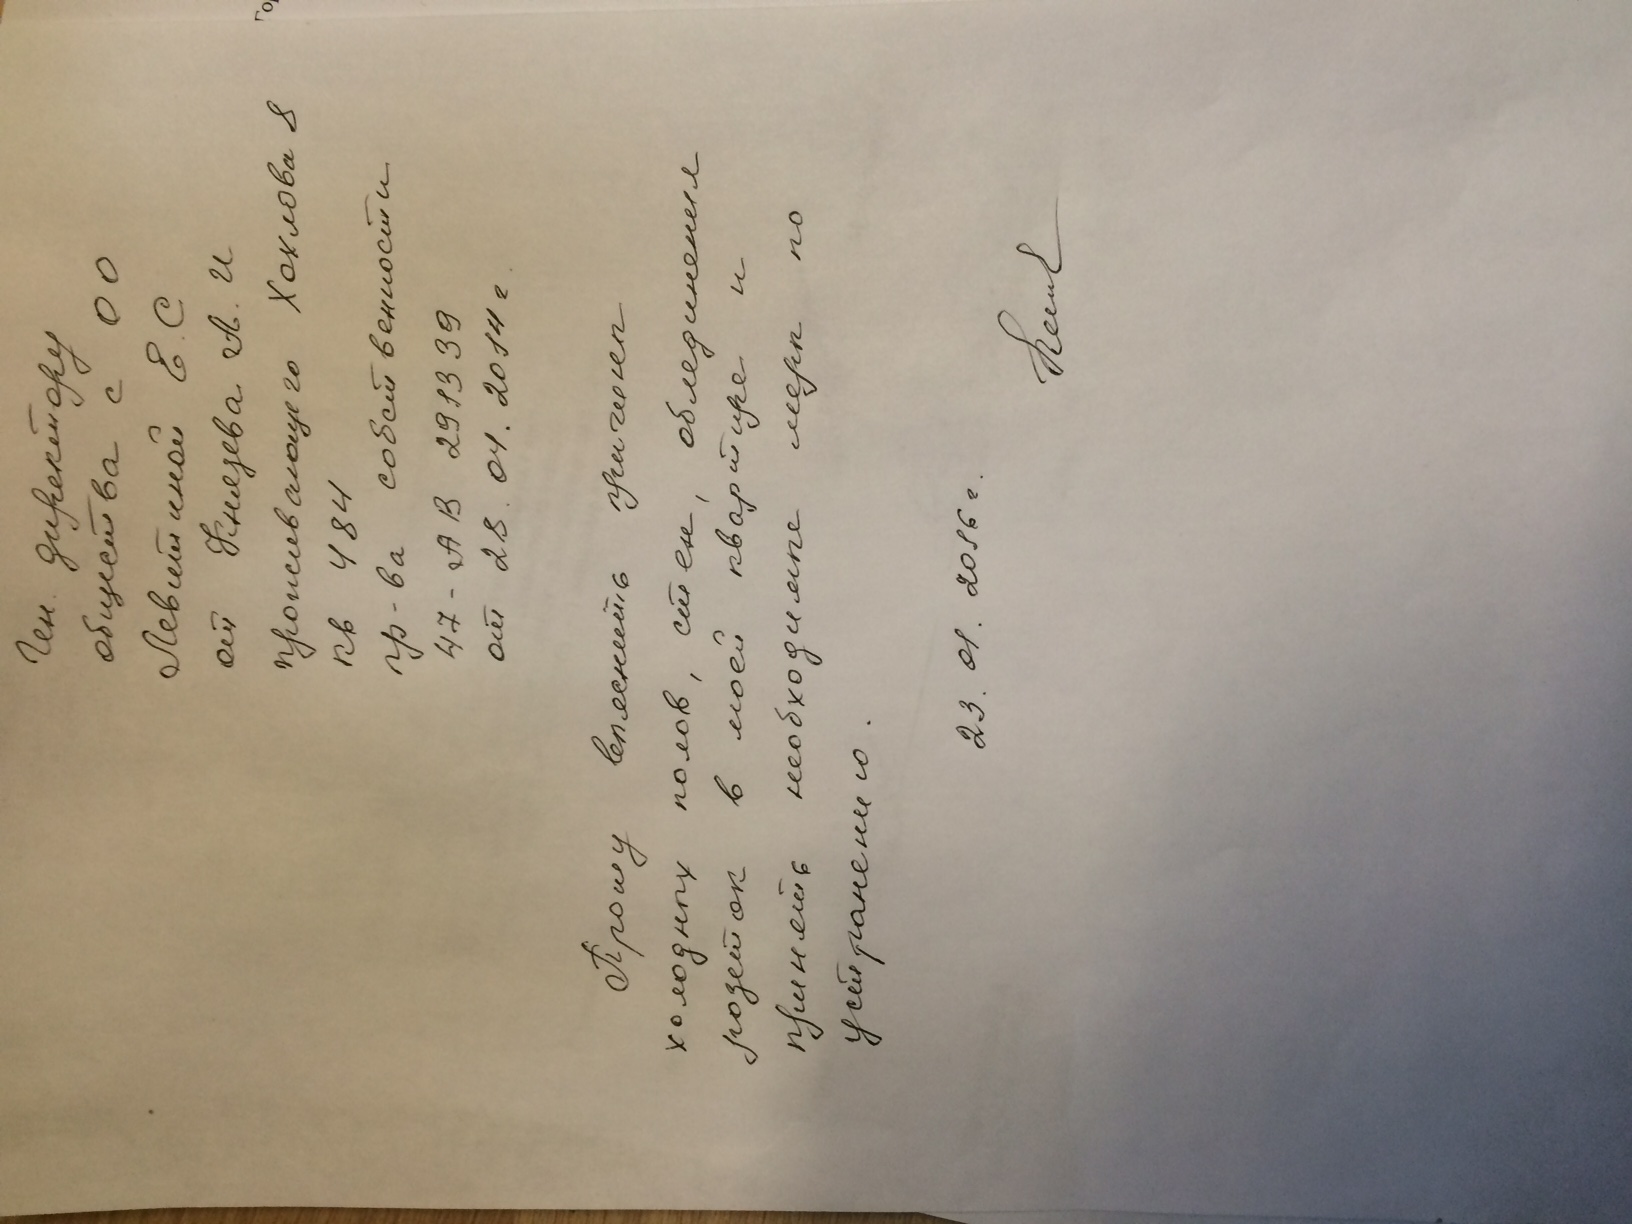 Ген. директору
общества с ОО
Левшиной Е.С
от Князева А.И
проживающего Хохлова 8
кв 484
пр-ва собственности
47-АВ 291339
от 28.01.2014г.
Прошу выяснить причины
холодных полов, стен, обледенения
розеток в моей квартире и
принять необходимые меры по
устранению.
23.01.2016г.